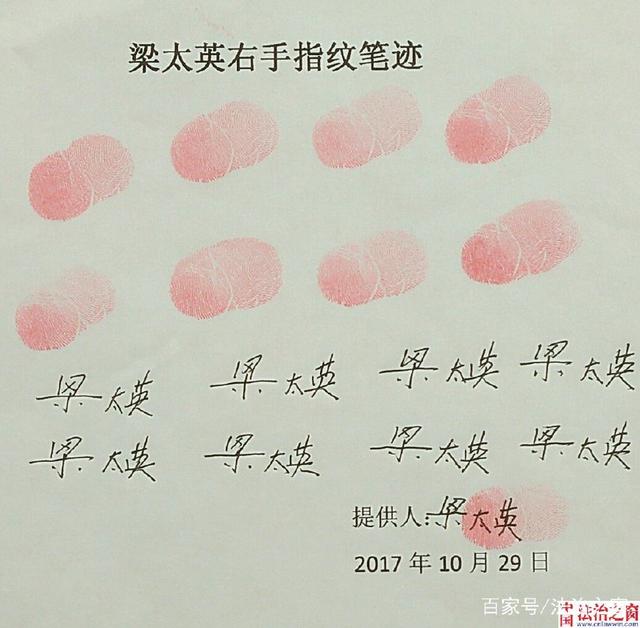 梁太英右手指纹笔迹
梁太英 梁太英 梁太英 梁太英
梁太英 梁太英 梁太英 梁太英
提供人:梁太英
2017 年 10 月 29 日
百家号/法治之窗
中国法治之窗
www.cnlawwin.com